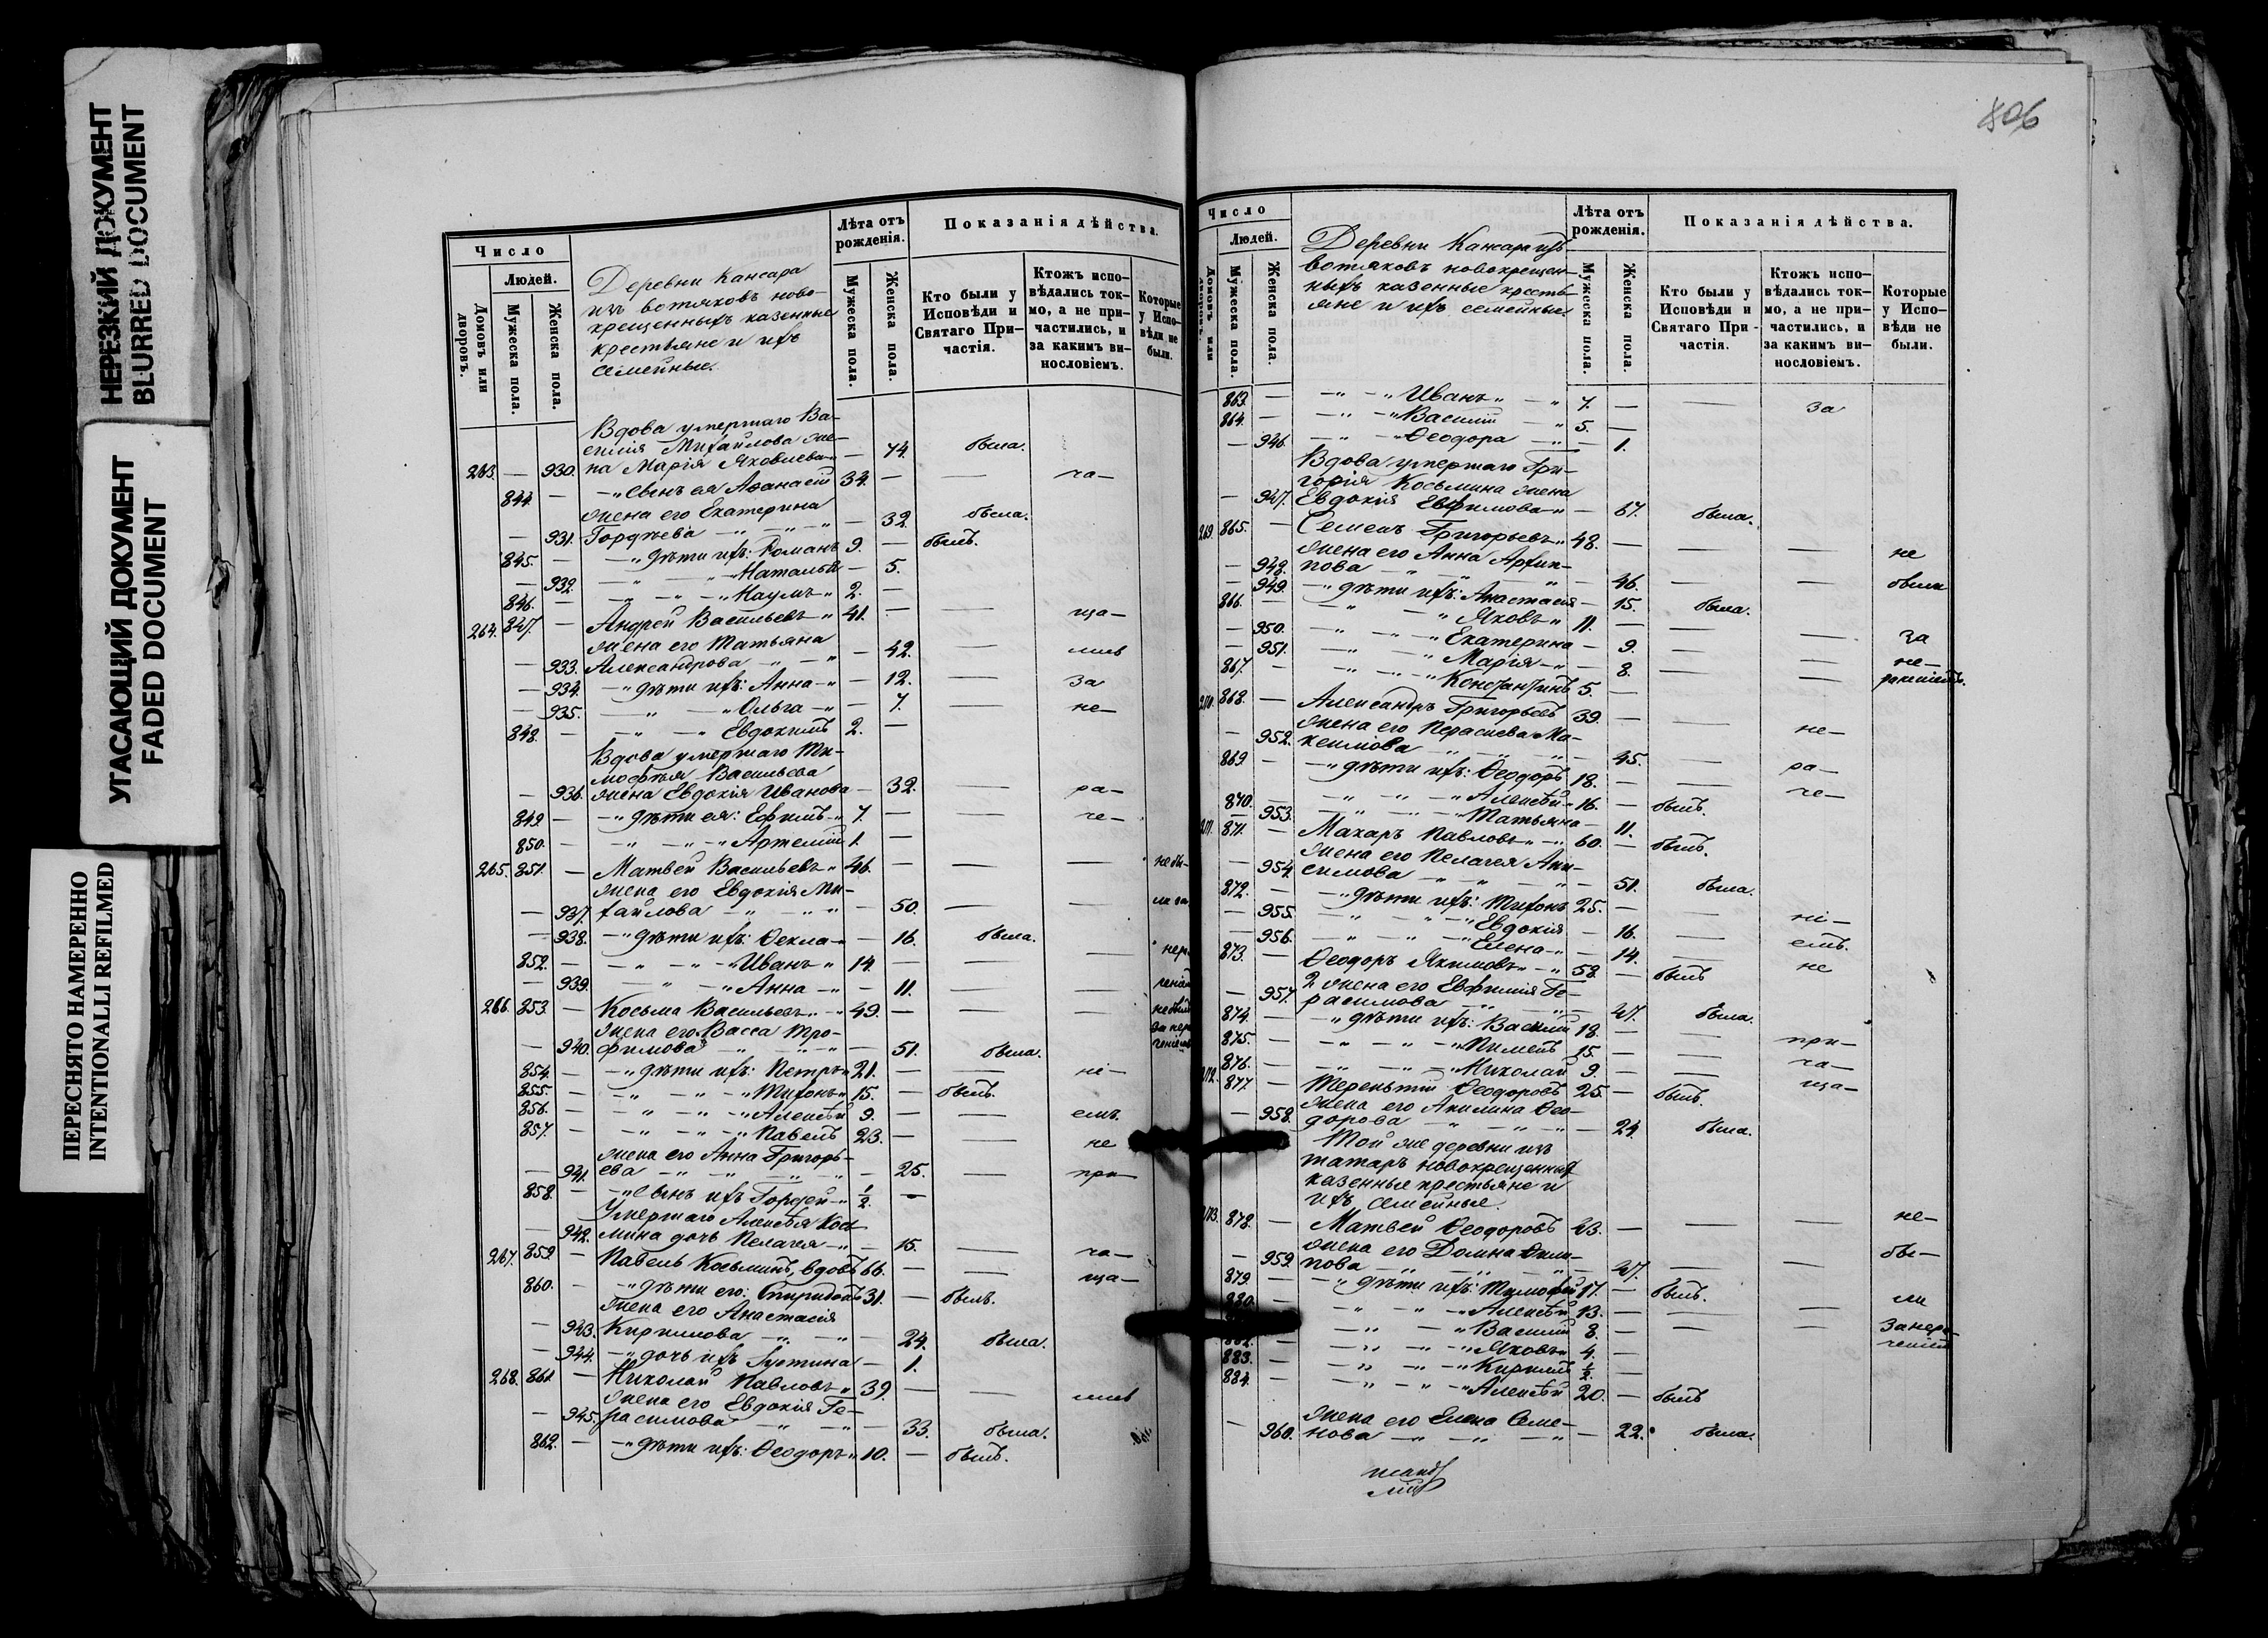 НЕРЕЗКИЙ ДОКУМЕНТ
BLURRED DOCUMENT
УГАСАЮЩИЙ ДОКУМЕНТ
FADED DOCUMENT
ПЕРЕСНЯТО НАМЕРЕННО
INTENTIONALLI REFILMED
Число
Людей.
Домовъ или дворовъ.
Мужеска пола.
Женска пола.
Деревни Кансара
изъ вотяковъ ново-
крещенныхъ казенные
крестьяне и ихъ
семейные.
Лѣта отъ рожденія.
Мужеска пола.
Женска пола.
Показанія дѣйства.
Кто были у Исповѣди и Святаго При-частія.
Ктожъ испо-вѣдались ток-мо, а не при-частились, и за какимъ ви-нословіемъ.
Которые у Испо-вѣди не были.
Вдова умершаго Ва-
силія Михайлова же-
263. — 930. на Марія Яковлева — 74. была.
844. — —„ сынъ ея Афанасій 34. — — ча—
жена его Екатерина
— 931. Гордѣева —„ —„ — 32. была.
845. — —„ дѣти ихъ: Романъ 9. — былъ.
— 932. —„ —„ Наталья — 5.
846. — —„ —„ —„ Наумъ „ 2. —
264. 847. — Андрей Васильевъ —„ 41. — — ща—
жена его Татьяна
— 933. Александрова —„ —„ — 42. — шив
— 934. —„ дѣти ихъ: Анна —„ — 12. — за
— 935. —„ —„ Ольга —„ — 7. — не—
848. — —„ —„ Евдокимъ 2. —
Вдова умершаго Ти-
мофѣя Васильева
— 936. жена Евдокія Иванова — 32. — ра—
849. — —„ дѣти ея: Ефимъ —„ 7. — — че—
850. — —„ —„ —„ Артемій 1. —
265. 851. — Матвей Васильевъ „ 46. — — — не бы—
жена его Евдокія Ми-
— 937. хайлова —„ —„ — 50. — — ли за
— 938. —„ дѣти ихъ: Ѳекла — — 16. была.
852. — —„ —„ —„ Иванъ „ 14. — — — нер.
— 939. —„ —„ Анна —„ — 11. — —
266. 853. — Косьма Васильевъ „ 49. — — —
жена его Васса Тро-
— 940. фимова —„ —„ — 51. была.
854. — —„ дѣти ихъ: Петръ „ 21. — — не—
855. — —„ —„ —„ Тихонъ „ 15. — былъ.
856. — —„ —„ —„ Алексѣй 9. — — емъ.
857. — —„ —„ —„ Павелъ 23. — — не
жена его Анна Григорь-
— 941. ева —„ —„ —„ — 25. — при—
858. — —„ сынъ ихъ Гордей „ ½. —
Умершаго Алексѣя Кось-
— 942. мина дочь Пелагея —„ — 15. — ча—
267. 859. — Павелъ Косьминъ, вдовъ 66. — — ща—
860. — —„ дѣти его: Спиридонъ 31. — былъ.
жена его Анастасія
— 943. Кириллова —„ —„ — 24. была.
— 944. —„ дочь ихъ Іустина — 1.
268. 861. — Николай Павловъ „ 39. — — шив
жена его Евдокія Ге-
— 945. расимова —„ —„ — 33. была.
862. — —„ дѣти ихъ: Ѳеодоръ „ 10. — былъ.
806
Число
Людей.
Домовъ или дворовъ.
Мужеска пола.
Женска пола.
Деревни Кансара изъ
вотяковъ новокрещен-
ныхъ казенные кресть-
яне и ихъ семейные.
Лѣта отъ рожденія.
Мужеска пола.
Женска пола.
Показанія дѣйства.
Кто были у Исповѣди и Святаго При-частія.
Ктожъ испо-вѣдались ток-мо, а не при-частились, и за какимъ ви-нословіемъ.
Которые у Испо-вѣди не были.
863. — —„ —„ Иванъ „ —„ 7. — — за
864. — —„ —„ Василій —„ 5. —
— 946. —„ —„ Ѳеодора —„ — 1.
Вдова умершаго Гри-
горія Косьмина жена
— 947. Евдокія Евфимова „ — 67. была.
269. 865. — Семенъ Григорьевъ „ 48. — — — не
жена его Анна Архип-
— 948. пова —„ —„ —„ — 46. — — были
— 949. —„ дѣти ихъ: Анастасія — 15. была.
866. — —„ —„ Яковъ „ 11. —
— 950. —„ —„ —„ Екатерина — 9. — — за
— 951. —„ —„ Марія —„ — 8. — — не—
867. — —„ —„ —„ Константинъ 5. —
270. 868. — Александръ Григорьевъ 39. — — не—
жена его Параскева Ма-
— 952. ксимова —„ —„ — 45. — ра—
869. — —„ дѣти ихъ: Ѳеодоръ 18. — — че—
870. — —„ —„ —„ Алексѣй „ 16. — былъ.
— 953. —„ —„ —„ Татьяна — 11.
271. 871. — Макаръ Павловъ „ —„ 60. — былъ.
жена его Пелагея Ани-
— 954. симова —„ —„ —„ — 51. была.
872. — —„ дѣти ихъ: Тихонъ 25. — — не—
— 955. —„ —„ —„ Евдокія — 16. — емъ.
— 956. —„ —„ —„ Елена —„ — 14. — не
873. — Ѳеодоръ Якимовъ „ —„ 58. — былъ
2 жена его Евфимія Ге-
— 957. расимова —„ —„ — 47. была.
874. — —„ дѣти ихъ: Василій 18. — — при—
875. — —„ —„ —„ Пименъ 15. — — ча—
876. — —„ —„ —„ Николай 9. — — ща—
272. 877. — Терентій Ѳеодоровъ 25. — былъ.
жена его Акилина Ѳео-
— 958. дорова —„ —„ —„ — 24. была.
Той же деревни изъ
татаръ новокрещенныхъ
казенные крестьяне и
ихъ семейные.
273. 878. — Матвей Ѳеодоровъ 43. — — — не—
жена его Домна Фили-
— 959. пова —„ —„ —„ — 47. — — бы—
879. — —„ дѣти ихъ: Тимофей 17. — былъ.
880. — —„ —„ —„ Алексѣй 13. — — — ли
—„ —„ Василій 8. — — —
882. — —„ —„ —„ Яковъ „ 4. —
883. — —„ —„ —„ Кириллъ ½. —
884. — —„ —„ —„ Алексѣй 20. — былъ
жена его Елена Семе-
— 960. нова —„ —„ —„ — 22. была.